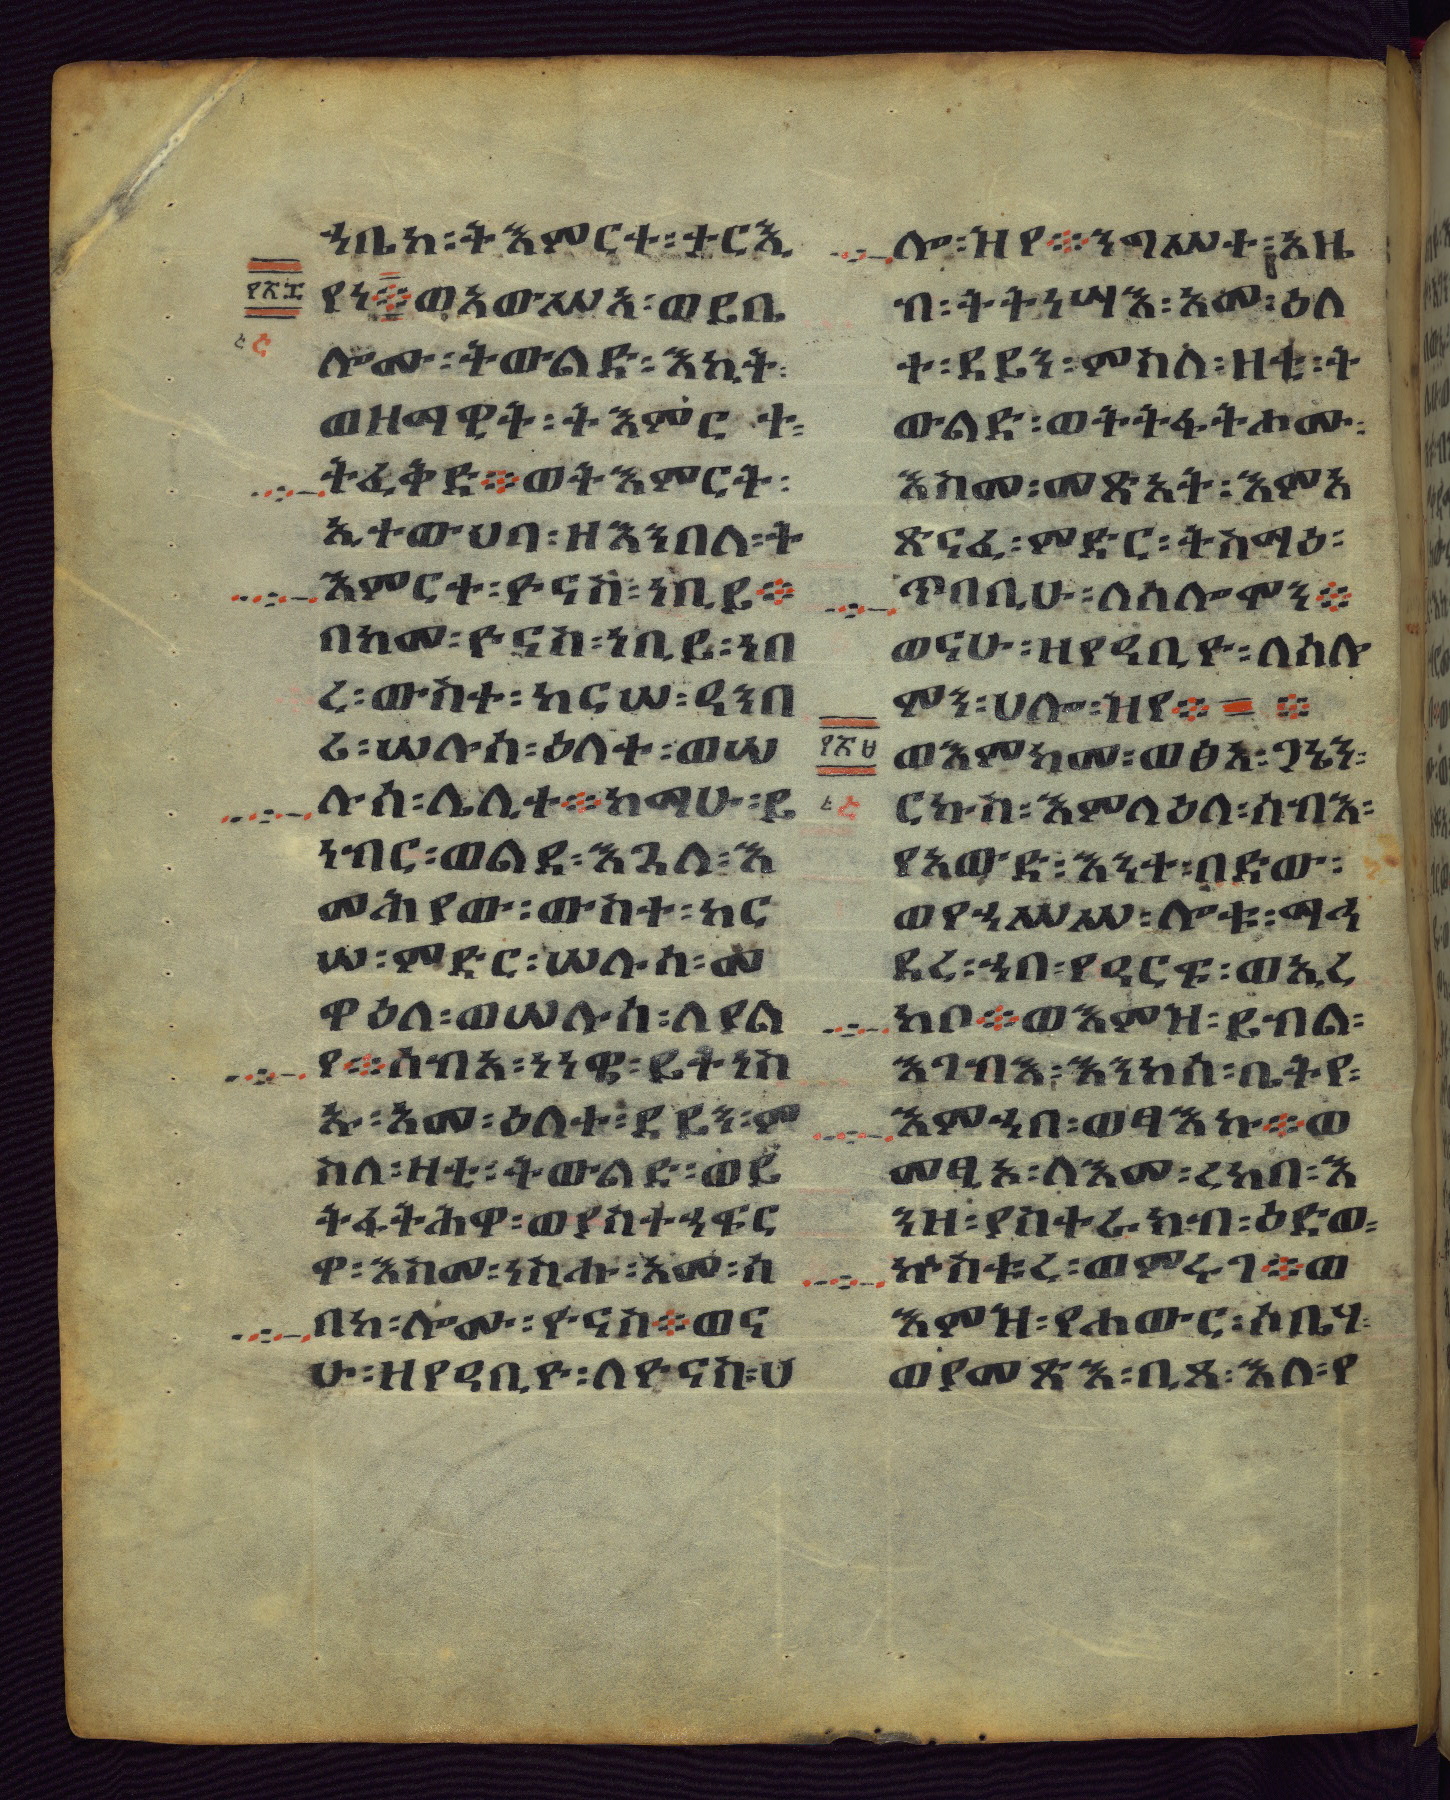 ኀቤከ፡ትእምርተ፡ተርኢ
የነ፨ወአውሥአ፡ወይቤ
ሎሙ፡ትውልድ፡እኪት፡
ወዘማዊት፡ትእምር ተ፡
ትፈቅድ፨ወትእምርት፡
ኢተውህባ፡ዘእንበለ፡ት
እምርተ፡ዮናስ፡ነቢይ፨
በከመ፡ዮናስ፡ነቢይ፡ነበ
ረ፡ውስተ፡ከርሠ፡ዓንበ
ሪ፡ሠሉስ፡ዕለተ፡ወሠ
ሉስ፡ሌሊተ፨ከማሁ፡ይ
ነብር፡ወልደ፡እጓለ፡እ
መሕያው፡ውስተ፡ከር
ሠ፡ምድር፡ሠሉስ፡መ
ዋዕለ፡ወሠሉስ፡ለያል
የ፨ሰብአ፡ነነዌ፡ይትነሥ
ኡ፡አመ፡ዕለተ፡ደይን፡ም
ስለ፡ዛቲ፡ትውልድ፡ወይ
ትፋትሕዋ፡ወያስተኀፍር
ዋ፡እስመ፡ነስሑ፡አመ፡ሰ
በከ፡ሎሙ፡ዮናስ፨ወና
ሁ፡ዘየዓቢዮ፡ለዮናስ፡ሀ
፲፰፯
ሎ፡ዝየ፨ንግሥተ፡አዜ
ብ፡ትትነሣእ፡አመ፡ዕለ
ተ፡ደይን፡ምስለ፡ዛቲ፡ት
ውልድ፡ወትትፋትሐሙ፡
እስመ፡መጽአት፡እምአ
ጽናፈ፡ምድር፡ትስማዕ፡
ጥበቢሁ፡ለሰሎሞን፨
ወናሁ፡ዘየዓቢዮ፡ለሰሎ
ሞን፡ሀሎ፡ዝየ፨ ፨
ወእምከመ፡ወፅአ፡ጋኔን፡
ርኩስ፡እምላዕለ፡ሰብእ፡
የአውድ፡እንተ፡በድው፡
ወየኀሥሥ፡ሎቱ፡ማኅ
ደረ፡ኀበ፡የዓርፍ፡ወኢረ
ከቦ፨ወእምዝ፡ይብል፡
እገብእ፡እንከሰ፡ቤትየ፡
እምኀበ፡ወፃእኩ፨ወ
መፂኦ፡ለእመ፡ረከበ፡እ
ንዘ፡ያስተራክብ፡ዕድወ፡
ኵስቱረ፡ወምሩገ፨ወ
እምዝ፡የሐውር፡ሶቤሃ፡
ወያመጽእ፡ቢጾ፡እለ፡የ